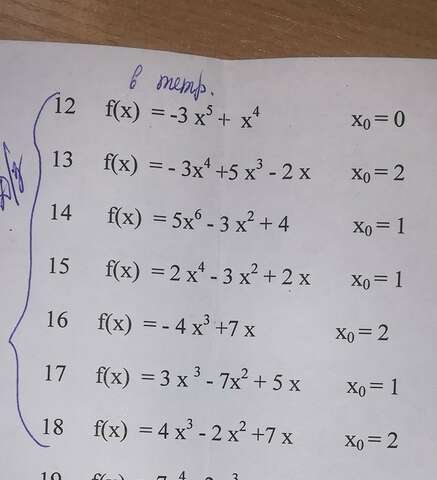 в тетр.
12 f(x) = -3 x⁵ + x⁴ x₀ = 0
13 f(x) = - 3x⁴ +5 x³ - 2 x x₀ = 2
14 f(x) = 5x⁶ - 3 x² + 4 x₀ = 1
15 f(x) = 2 x⁴ - 3 x² + 2 x x₀ = 1
16 f(x) = - 4 x³ +7 x x₀ = 2
17 f(x) = 3 x ³ - 7x² + 5 x x₀ = 1
18 f(x) = 4 x³ - 2 x² +7 x x₀ = 2
Д/з